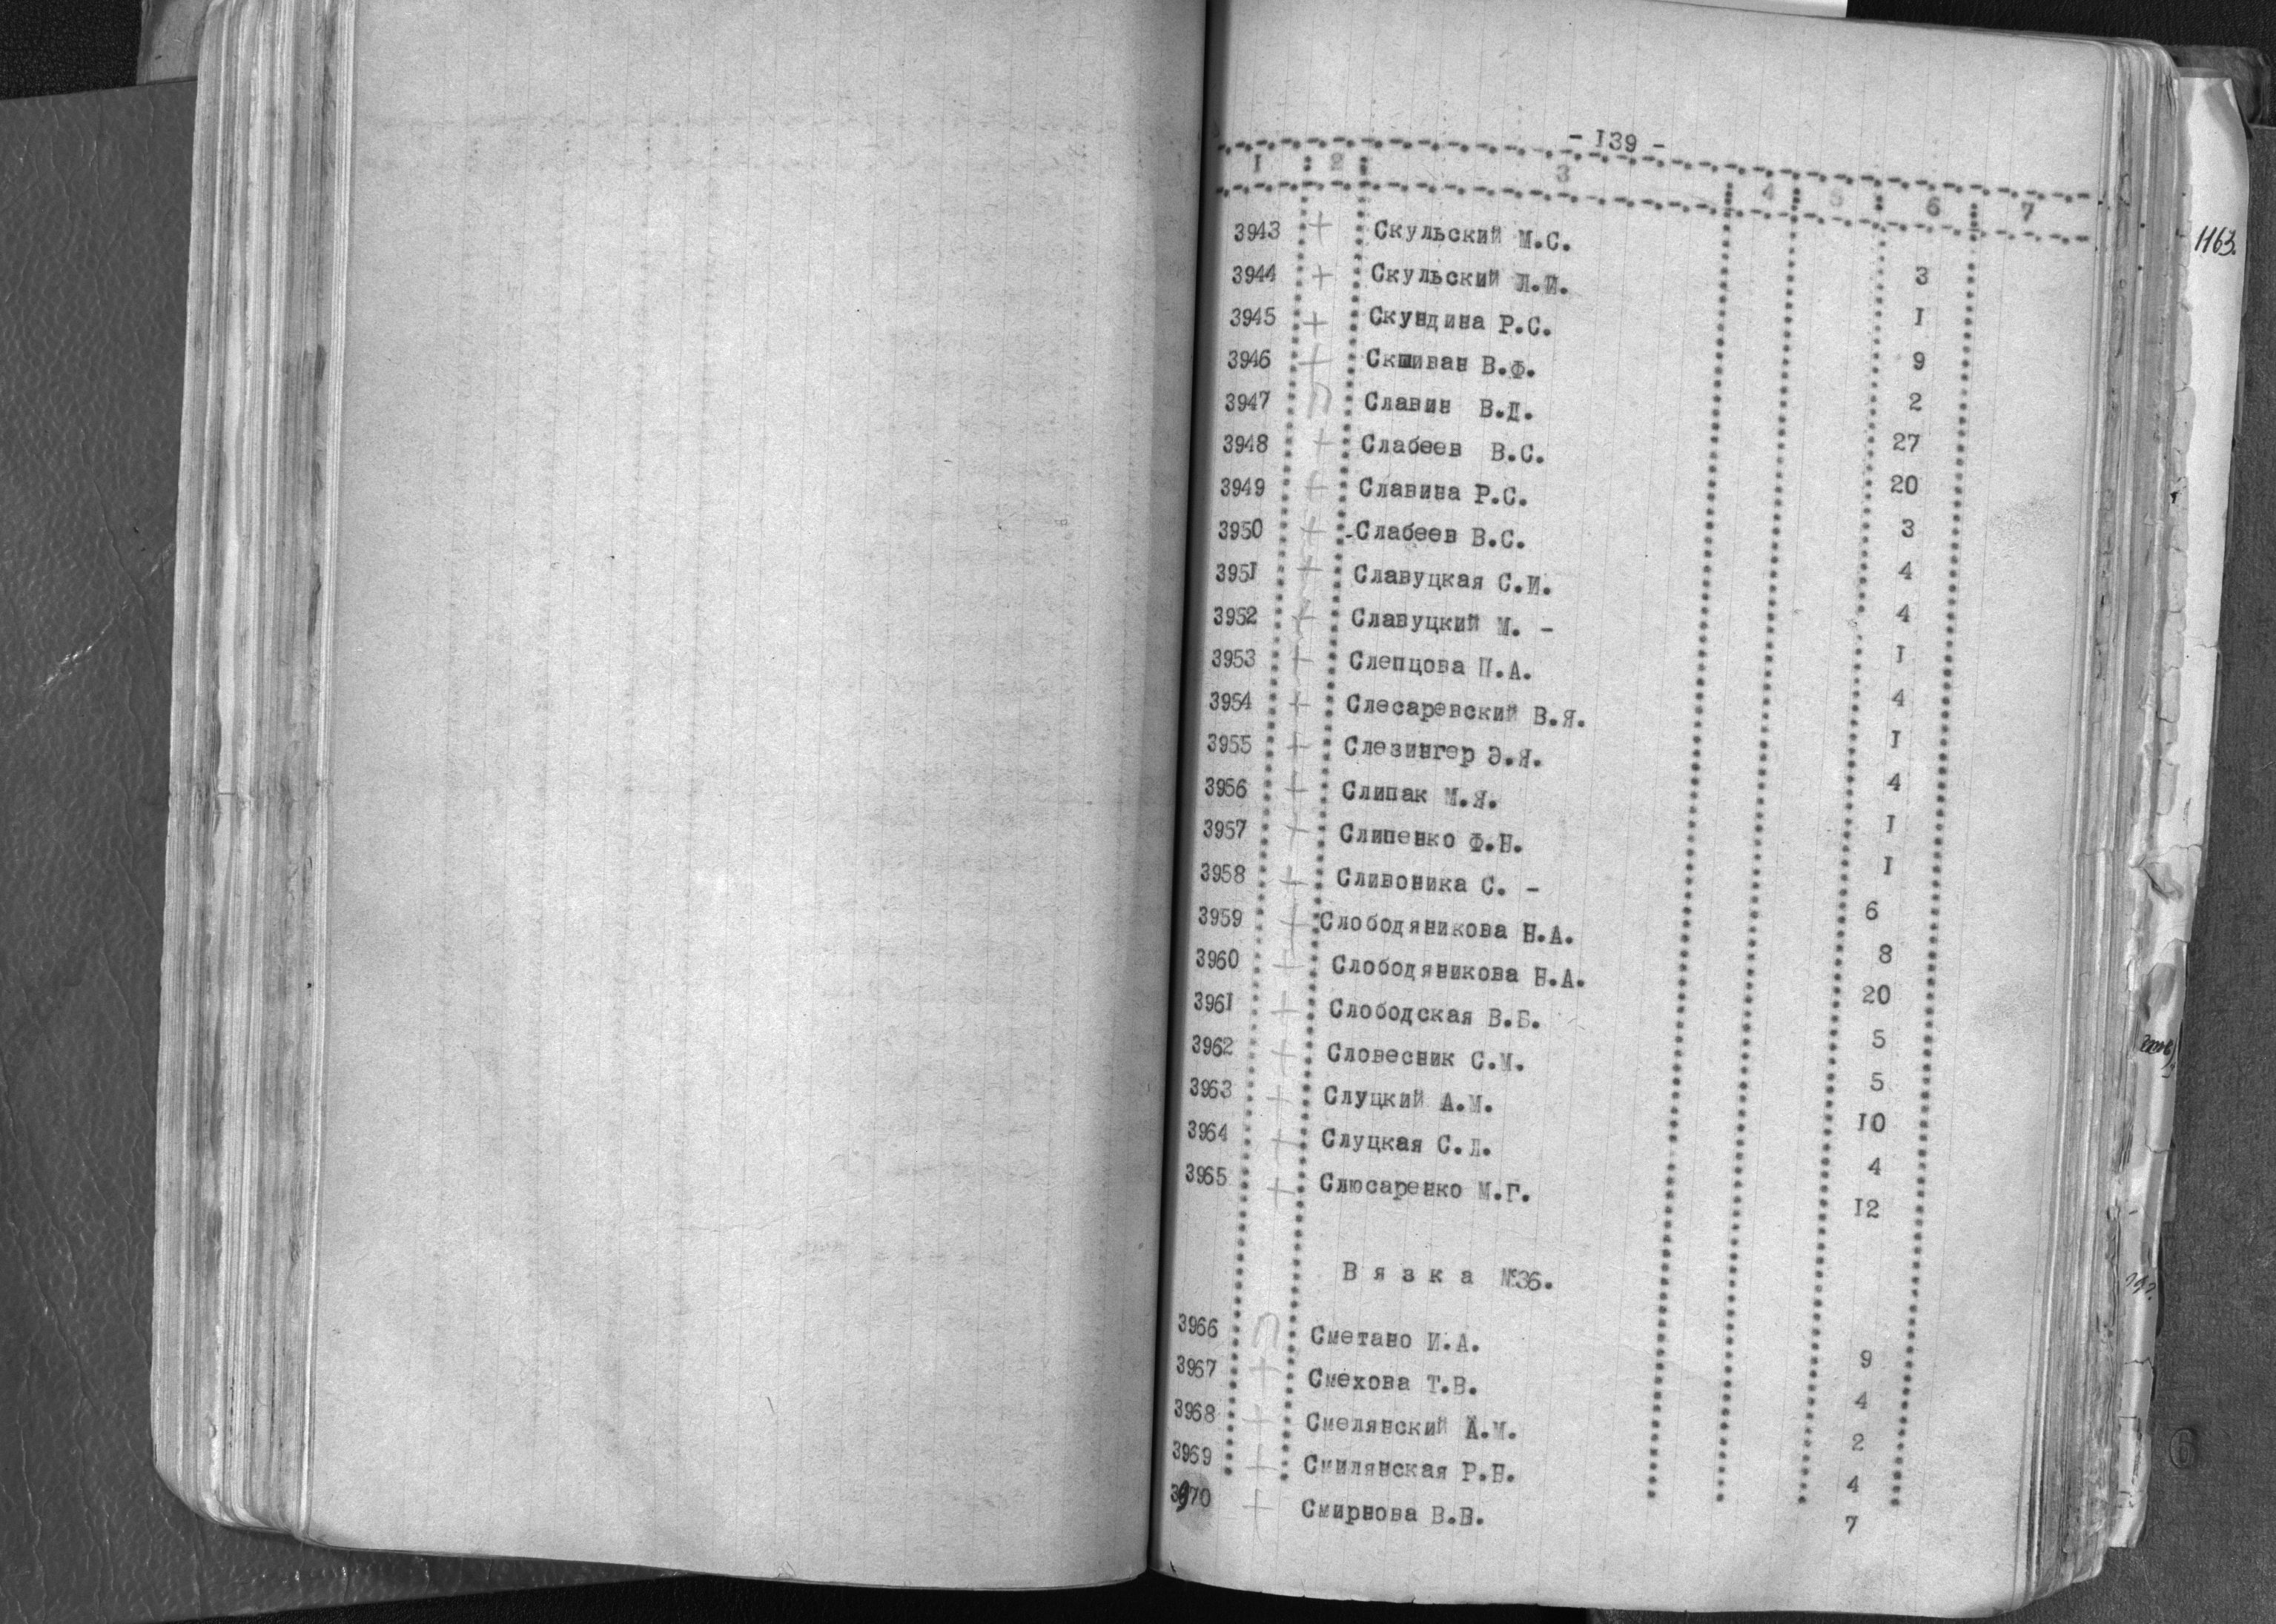 - I39 -
I : 2 : 3 : 4 : 5 : 6 : 7
3943 + Скульский М.С. 3
3944 + Скульский Л.И. I
3945 + Скундина Р.С. 9
3946 + Скшиван В.Ф. 2
3947 П Славин В.Д. 27
3948 + Слабеев В.С. 20
3949 + Славина Р.С. 3
3950 + -Слабеев В.С. 4
395I + Славуцкая С.И. 4
3952 + Славуцкий М. - I
3953 + Слепцова П.А. 4
3954 + Слесаревский В.Я. I
3955 + Слезингер Э.Я. 4
3956 + Слипак М.Я. I
3957 + Слипенко Ф.Н. I
3958 + Сливоника С. - 6
3959 + Слободяникова Н.А. 8
3960 + Слободяникова Н.А. 20
396I + Слободская В.Б. 5
3962 + Словесник С.М. 5
3963 + Слуцкий А.М. I0
3964 + Слуцкая С.Л. 4
3965 + Слюсаренко М.Г. I2
Вязка №36.
3966 П Сметано И.А. 9
3967 + Смехова Т.В. 4
3968 + Смелянский А.М. 2
3969 + Смилянская Р.Н. 4
3970 + Смирнова В.В. 7
1163.